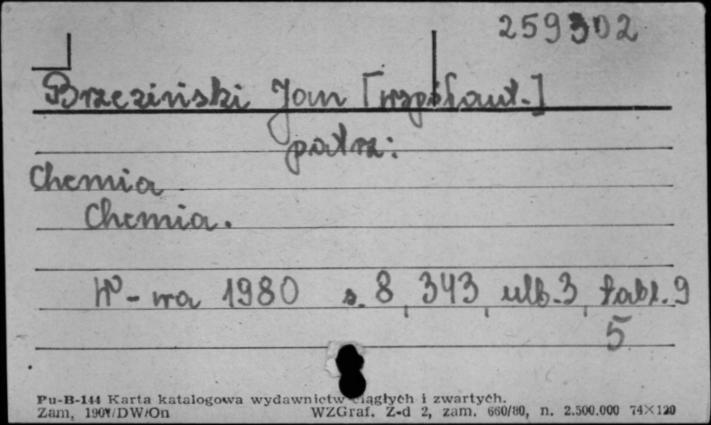 259302
Brzeziński Jan [współaut.]
patrz:
Chemia
Chemia.
W-wa 1980 s. 8, 343, ulb. 3, tabl. 9
5
Pu-B-144 Karta katalogowa wydawnictw ciągłych i zwartych.
Zam. DW/On WZGraf. Z-d 2, zam. 660/80, n. 2.500.000 74×120